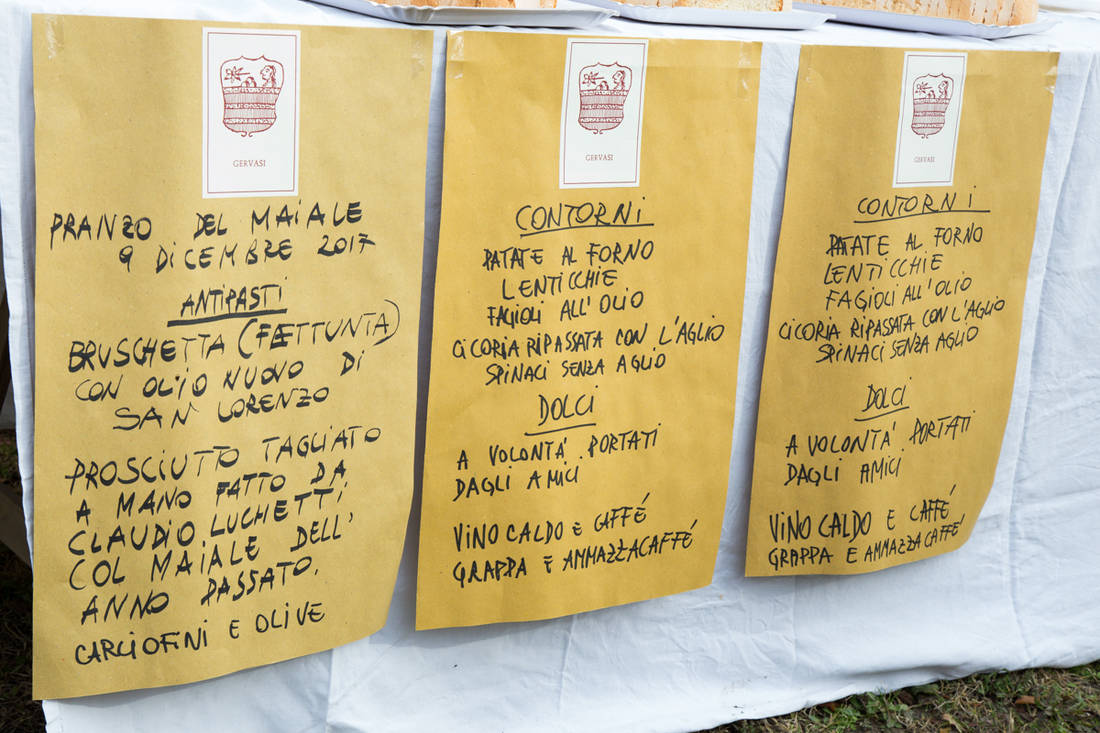 GERVASI
PRANZO DEL MAIALE
9 DICEMBRE 2017
ANTIPASTI
BRUSCHETTA (FETTUNTA)
CON OLIO NUOVO DI
SAN LORENZO
PROSCIUTTO TAGLIATO
A MANO FATTO DA
CLAUDIO LUCHETTI
COL MAIALE DELL'
ANNO PASSATO.
CARCIOFINI E OLIVE
GERVASI
CONTORNI
PATATE AL FORNO
LENTICCHIE
FAGIOLI ALL'OLIO
CICORIA RIPASSATA CON L'AGLIO
SPINACI SENZA AGLIO
DOLCI
A VOLONTÀ PORTATI
DAGLI AMICI
VINO CALDO E CAFFÉ
GRAPPA E AMMAZZACAFFÉ
GERVASI
CONTORNI
PATATE AL FORNO
LENTICCHIE
FAGIOLI ALL'OLIO
CICORIA RIPASSATA CON L'AGLIO
SPINACI SENZA AGLIO
DOLCI
A VOLONTÀ PORTATI
DAGLI AMICI
VINO CALDO E CAFFÉ
GRAPPA E AMMAZZA CAFFÉ